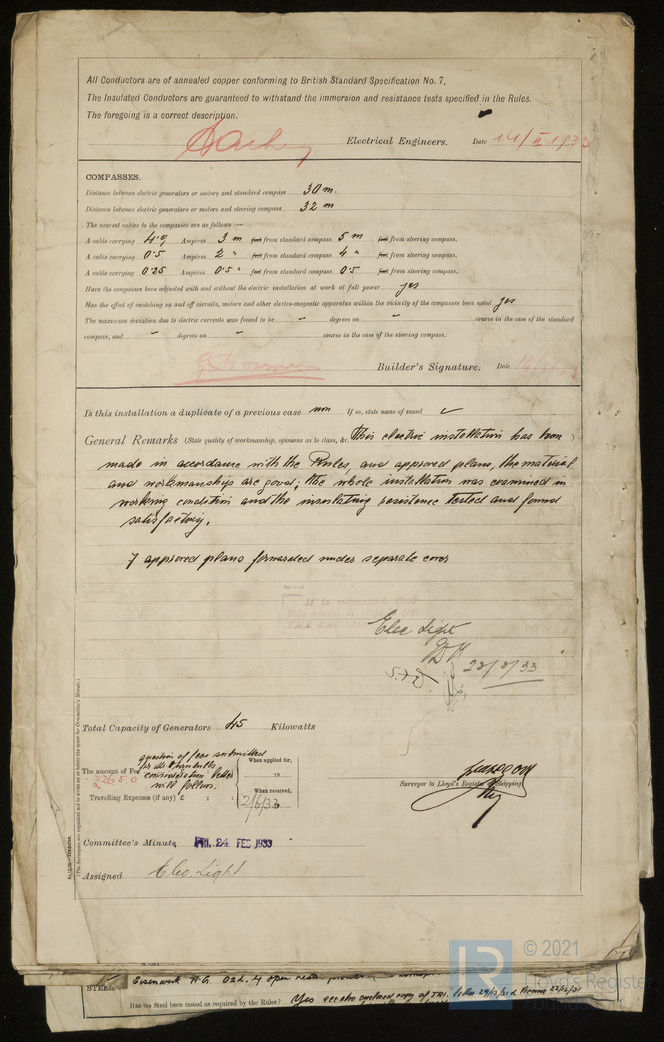 All Conductors are of annealed copper conforming to British Standard Specification No. 7.
The Insulated Conductors are guaranteed to withstand the immersion and resistance tests specified in the Rules.
The foregoing is a correct description.
Electrical Engineers. Date 14/II 1933
COMPASSES.
Distance between electric generators or motors and standard compass 30 m.
Distance between electric generators or motors and steering compass 32 m
The nearest cables to the compasses are as follows:—
A cable carrying 4·9 Ampères 3 m feet from standard compass 5 m feet from steering compass.
A cable carrying 0·5 Ampères 2 " feet from standard compass 4 " feet from steering compass.
A cable carrying 0·25 Ampères 0·5 " feet from standard compass 0·5 feet from steering compass.
Have the compasses been adjusted with and without the electric installation at work at full power yes
Has the effect of switching on and off circuits, motors and other electro-magnetic apparatus within the vicinity of the compasses been noted yes
The maximum deviation due to electric currents was found to be degrees on course in the case of the standard
compass, and degrees on course in the case of the steering compass.
Builder's Signature. Date
Is this installation a duplicate of a previous case If so, state name of vessel
General Remarks (State quality of workmanship, opinions as to class, &c. This electric installation has been
made in accordance with the Rules, and approved plans, the material
and workmanship are good; the whole installation was examined in
working condition and the insulating resistance tested and found
satisfactory.
7 approved plans forwarded under separate cover
Elec Light
22/2/33
Total Capacity of Generators 45 Kilowatts
question of fees submitted
The amount of Fee consideration letter
will follow.
When applied for,
19
When received,
2/6/33
Travelling Expenses (if any) £ : :
Surveyor to Lloyd's Register of Shipping
Committee's Minute FRI. 24 FEB 1933
Assigned Elec. Light
(The Surveyors are requested not to write on or below the space for Committee's Minute.)
STEEL
Has the Steel been tested as required by the Rules? Yes see also enclosed copy of
© 2021
Lloyd's Register
Foundation